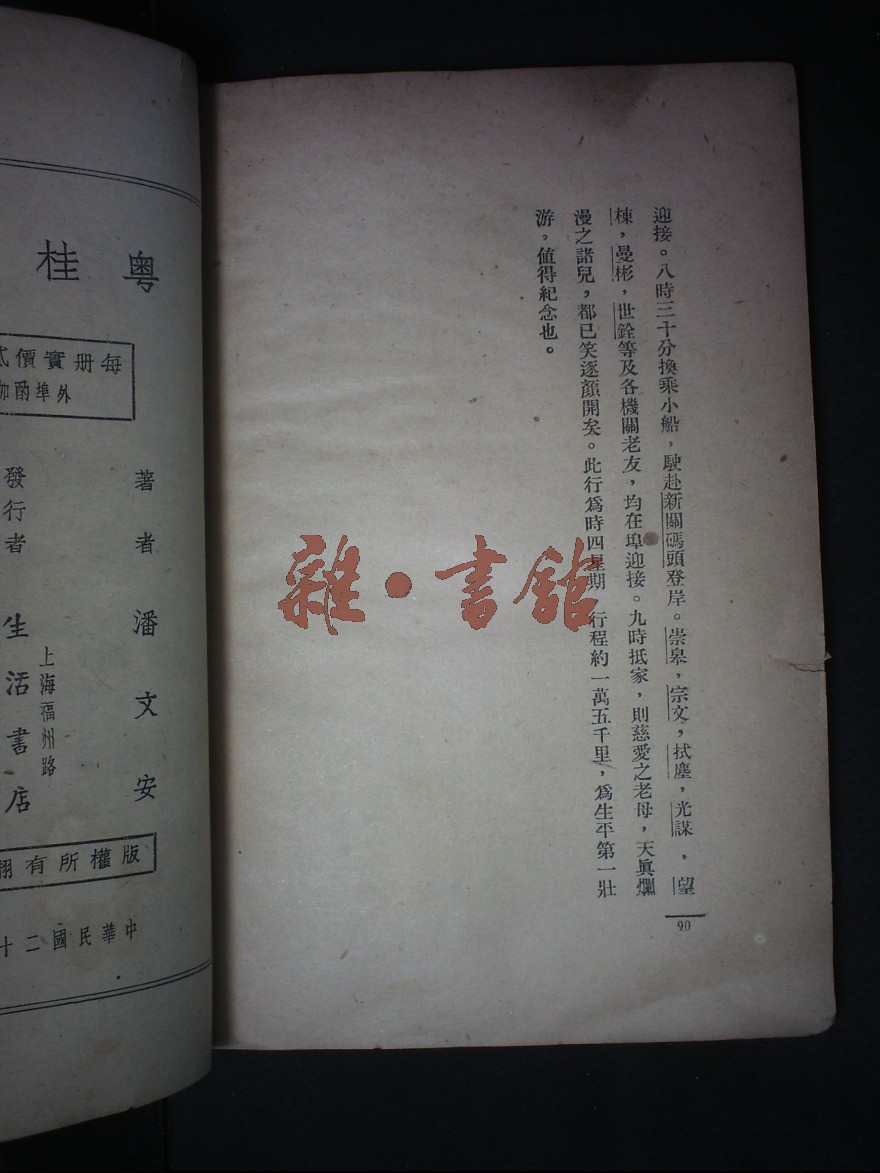 迎接。八時三十分換乘小船，駛赴新關碼頭登岸。崇皋，宗文，拭塵，光謀，望
棟，曼彬，世銓等及各機關老友，均在埠迎接。九時抵家，則慈愛之老母，天眞爛
漫之諸兒，都已笑逐顏開矣。此行爲時四星期 行程約一萬五千里，爲生平第一壯
游。值得紀念也。
90
雜·書館
粵桂
每册實價
外埠酌加
著者 潘文安
發行者 生活書店
上海福州路
版權所有翻
中華民國二十